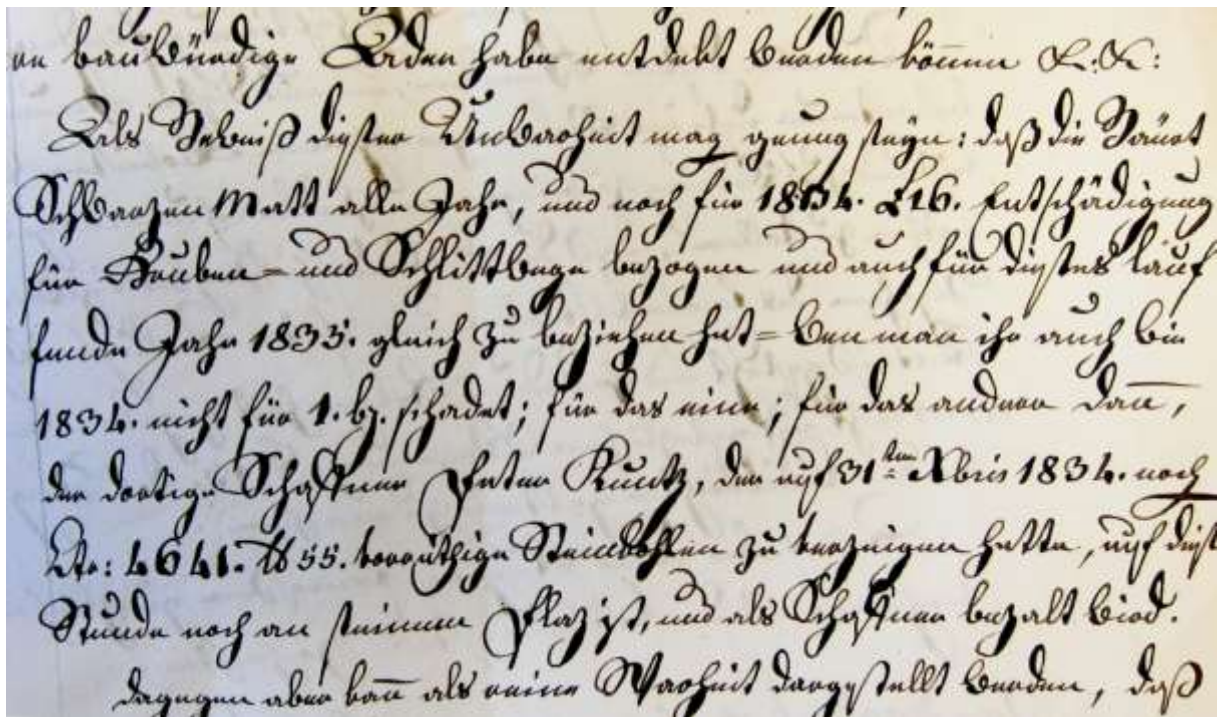 en bauwürdige Adern habe entdekt werden können &.&:
Als Bebeniß diesser Unwarheit mag genug sseyn: daß die Bäüert
Schwarzen Matt alle Jahr, und noch für 1834. L 16. Entschädigung
für Gruben= und Schlittwege bezogen und auch für diesses lauf
fende Jahr 1835. gleich zu beziehen hat= wen man ihr auch wie
1834. nicht für 1. bz. schadet; für das eine; für das andere dañ,
der dortige Schaffner Peter Kuntz, der auf 31ten Xbris 1834. noch
Ctr: 4641. ℔ 55. vorräthige Steinkohlen zu verzeigen hatte, auf diese
Stunde noch an sseinem Plaz ist, und als Schaffner bezalt wird.
dagegen aber kañ als reine Warheit dargestellt werden, daß